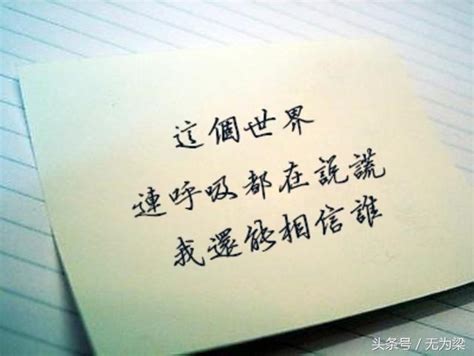 這個世界
連呼吸都在説謊
我還能相信誰
头条号 / 无为梁